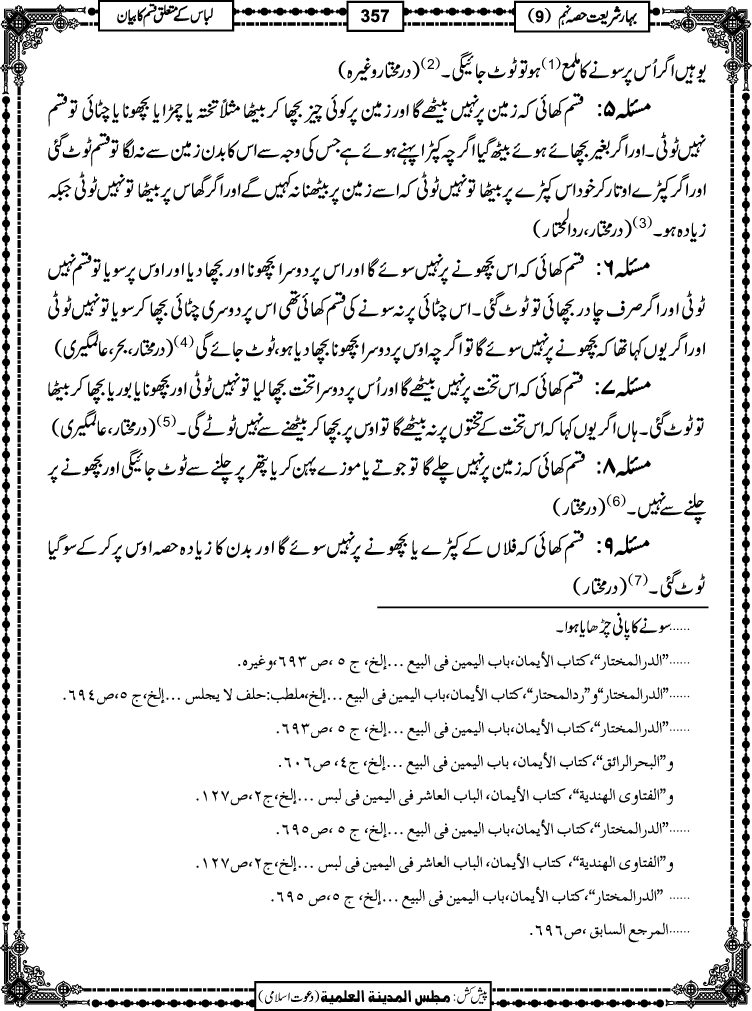 بہار شریعت حصہ نہم (9)
357
لباس کے متعلق قسم کا بیان
یوہیں اگر اُس پر سونے کا ملمع(1) ہو تو ٹوٹ جائیگی۔(2) (درمختار وغیرہ)
مسئلہ ۵: قسم کھائی کہ زمین پر نہیں بیٹھے گا اور زمین پر کوئی چیز بچھا کر بیٹھا مثلاً تختہ یا چمڑا یا بچھونا یا چٹائی تو قسم
نہیں ٹوٹی۔ اور اگر بغیر بچھائے ہوئے بیٹھ گیا اگرچہ کپڑا پہنے ہوئے ہے جس کی وجہ سے اس کا بدن زمین سے نہ لگا تو قسم ٹوٹ گئی
اور اگر کپڑے اوتار کر خود اس کپڑے پر بیٹھا تو نہیں ٹوٹی کہ اسے زمین پر بیٹھنا نہ کہیں گے اور اگر گھاس پر بیٹھا تو نہیں ٹوٹی جبکہ
زیادہ ہو۔(3) (درمختار، ردالمحتار)
مسئلہ ۶: قسم کھائی کہ اس بچھونے پر نہیں سوئے گا اور اس پر دوسرا بچھونا اور بچھا دیا اور اوس پر سویا تو قسم نہیں
ٹوٹی اور اگر صرف چادر بچھائی تو ٹوٹ گئی۔ اس چٹائی پر نہ سونے کی قسم کھائی تھی اس پر دوسری چٹائی بچھا کر سویا تو نہیں ٹوٹی
اور اگر یوں کہا تھا کہ بچھونے پر نہیں سوئے گا تو اگرچہ اوس پر دوسرا بچھونا بچھا دیا ہو، ٹوٹ جائے گی(4) (درمختار، بحر، عالمگیری)
مسئلہ ۷: قسم کھائی کہ اس تخت پر نہیں بیٹھے گا اور اُس پر دوسرا تخت بچھا لیا تو نہیں ٹوٹی اور بچھونا یا بوریا بچھا کر بیٹھا
تو ٹوٹ گئی۔ ہاں اگر یوں کہا کہ اس تخت کے تختوں پر نہ بیٹھے گا تو اوس پر بچھا کر بیٹھنے سے نہیں ٹوٹے گی۔(5) (درمختار، عالمگیری)
مسئلہ ۸: قسم کھائی کہ زمین پر نہیں چلے گا تو جوتے یا موزے پہن کر یا پتھر پر چلنے سے ٹوٹ جائیگی اور بچھونے پر
چلنے سے نہیں۔(6) (درمختار)
مسئلہ ۹: قسم کھائی کہ فلاں کے کپڑے یا بچھونے پر نہیں سوئے گا اور بدن کا زیادہ حصہ اوس پر کر کے سو گیا
ٹوٹ گئی۔(7) (درمختار)
......سونے کا پانی چڑھایا ہوا۔
......”الدرالمختار“،کتاب الأیمان،باب الیمین فی البیع ...إلخ، ج ٥ ،ص ٦٩٣،وغیره.
......”الدرالمختار“و”ردالمحتار“،کتاب الأیمان،باب الیمین فی البیع ...إلخ،ملطب:حلف لا یجلس ...إلخ،ج ٥،ص٦٩٤.
......”الدرالمختار“،کتاب الأیمان،باب الیمین فی البیع ...إلخ، ج ٥ ،ص٦٩٣.
و”البحرالرائق“،کتاب الأیمان، باب الیمین فی البیع ...إلخ، ج٤، ص٦٠٦.
و”الفتاوی الهندیة“، کتاب الأیمان، الباب العاشر فی الیمین فی لبس ...إلخ،ج٢،ص١٢٧.
......”الدرالمختار“،کتاب الأیمان،باب الیمین فی البیع ...إلخ، ج ٥ ،ص٦٩٥.
و”الفتاوی الهندیة“، کتاب الأیمان، الباب العاشر فی الیمین فی لبس ...إلخ،ج٢،ص١٢٧.
...... ”الدرالمختار“،کتاب الأیمان،باب الیمین فی البیع ...إلخ، ج ٥،ص ٦٩٥ .
......المرجع السابق ،ص٦٩٦.
پیش کش: مجلس المدینة العلمیة (دعوت اسلامی)